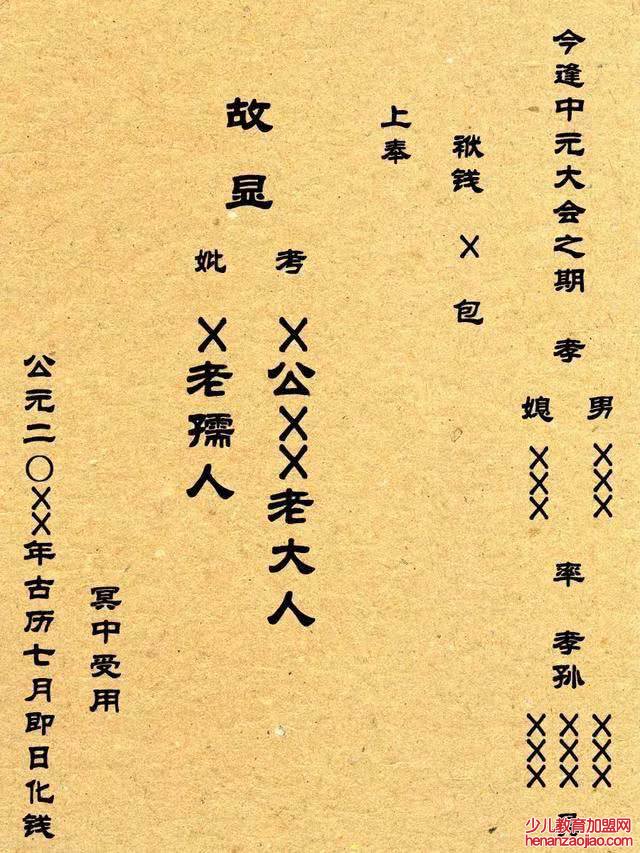 今逢中元大会之期 孝
男 XXX
媳 XXX
率 孝孙
XXX
XXX
XXX
袱钱 X 包
上奉
故显
考 X公XX老大人
妣 X老孺人
冥中受用
公元二〇XX年古历七月即日化钱
少儿教育加盟网
henanzaojiao.com